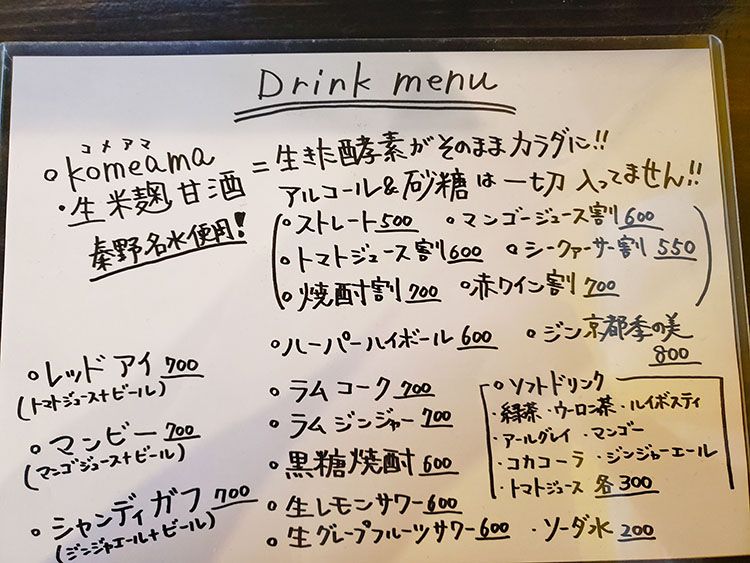 Drink menu
コメアマ
○komeama = 生きた酵素がそのままカラダに!!
・生米麹甘酒 アルコール&砂糖は一切入ってません!!
秦野名水使用!
○ストレート500 ○マンゴージュース割600
○トマトジュース割600 ○シークァーサー割550
○焼酎割700 ○赤ワイン割700
○ハーパーハイボール600 ○ジン京都季の美
800
○レッドアイ700
(トマトジュース+ビール)
○マンビー700
(マンゴジュース+ビール)
○シャンディガフ700
(ジンジャエール+ビール)
○ラムコーク700
○ラムジンジャー700
○黒糖焼酎600
○生レモンサワー600
○生グレープフルーツサワー600
○ソフトドリンク
・緑茶・ウーロン茶・ルイボスティ
・アールグレイ・マンゴー
・コカコーラ・ジンジャーエール
・トマトジュース 各300
○ソーダ水200